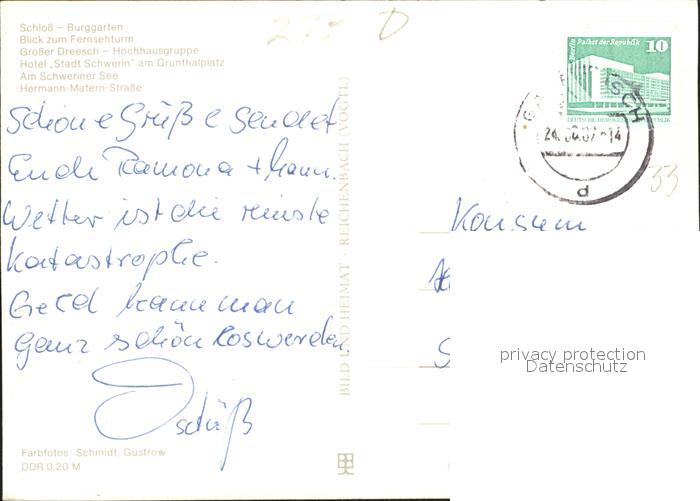 Schloß – Burggarten
Blick zum Fernsehturm
Großer Dreesch – Hochhausgruppe
Hotel „Stadt Schwerin" am Grunthalplatz
Am Schweriner See
Hermann-Matern-Straße
Schöne Grüße sendet
Euch Ramona + Mann.
Wetter ist die reinste
Katastrophe.
Geld kann man
ganz schön loswerden.
Tschüß
Farbfotos: Schmidt, Güstrow
DDR 0,20 M
BILD UND HEIMAT · REICHENBACH (VOGTL)
Berlin Palast der Republik
10
DEUTSCHE DEMOKRATISCHE REPUBLIK
d
33
Konsum
privacy protection
Datenschutz